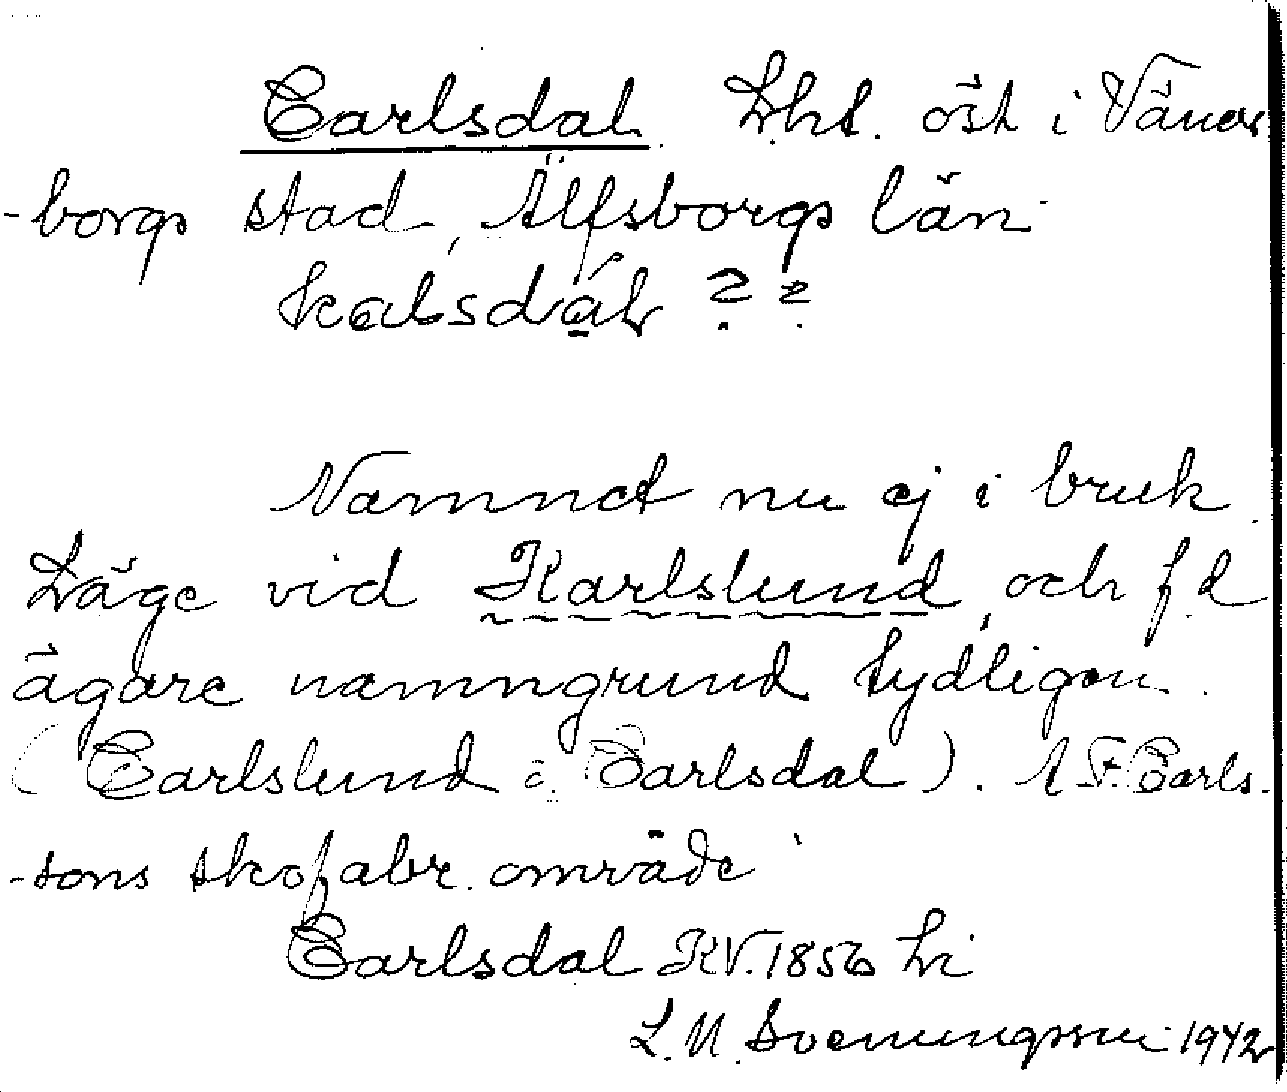 Carlsdal. Lht. öst i Väners
-borgs stad, Älfsborgs län
kalsdál ? ?
Namnet nu ej i bruk.
Läge vid Karlslund, och f.d
ägare namngrund tydligen.
(Carlslund o. Carlsdal). A F. Carls-
-sons skofabr. område
Carlsdal KV. 1856 Li
L. M. Svenungsson 1942